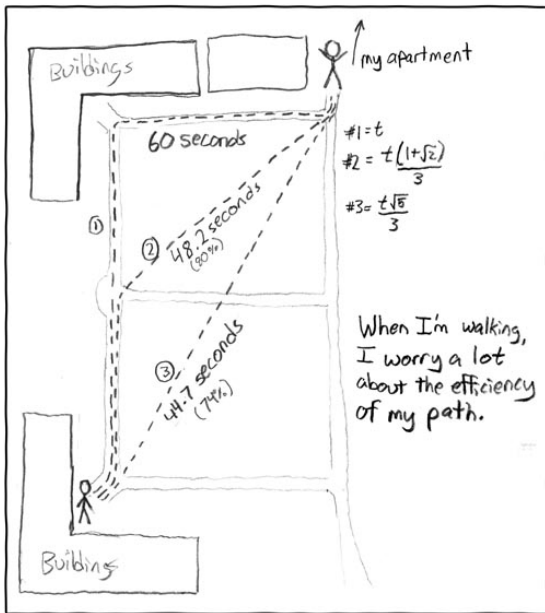 Buildings
my apartment
60 seconds
#1 = t
#2 = t(1+√2)/3
#3 = t√5/3
①
②
48.2 seconds
(80%)
③
44.7 seconds
(74%)
When I'm walking,
I worry a lot
about the efficiency
of my path.
Buildings